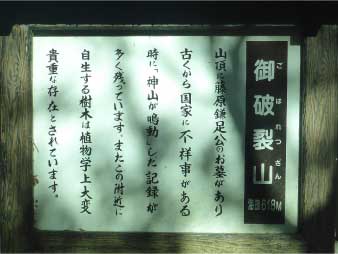 御破裂山
ごはれつざん
海抜618M
山頂に藤原鎌足公のお墓があり
古くから国家に不祥事がある
時に、「神山が鳴動」した記録が
多く残っています。またこの附近に
自生する樹木は植物学上大変
貴重な存在とされています。